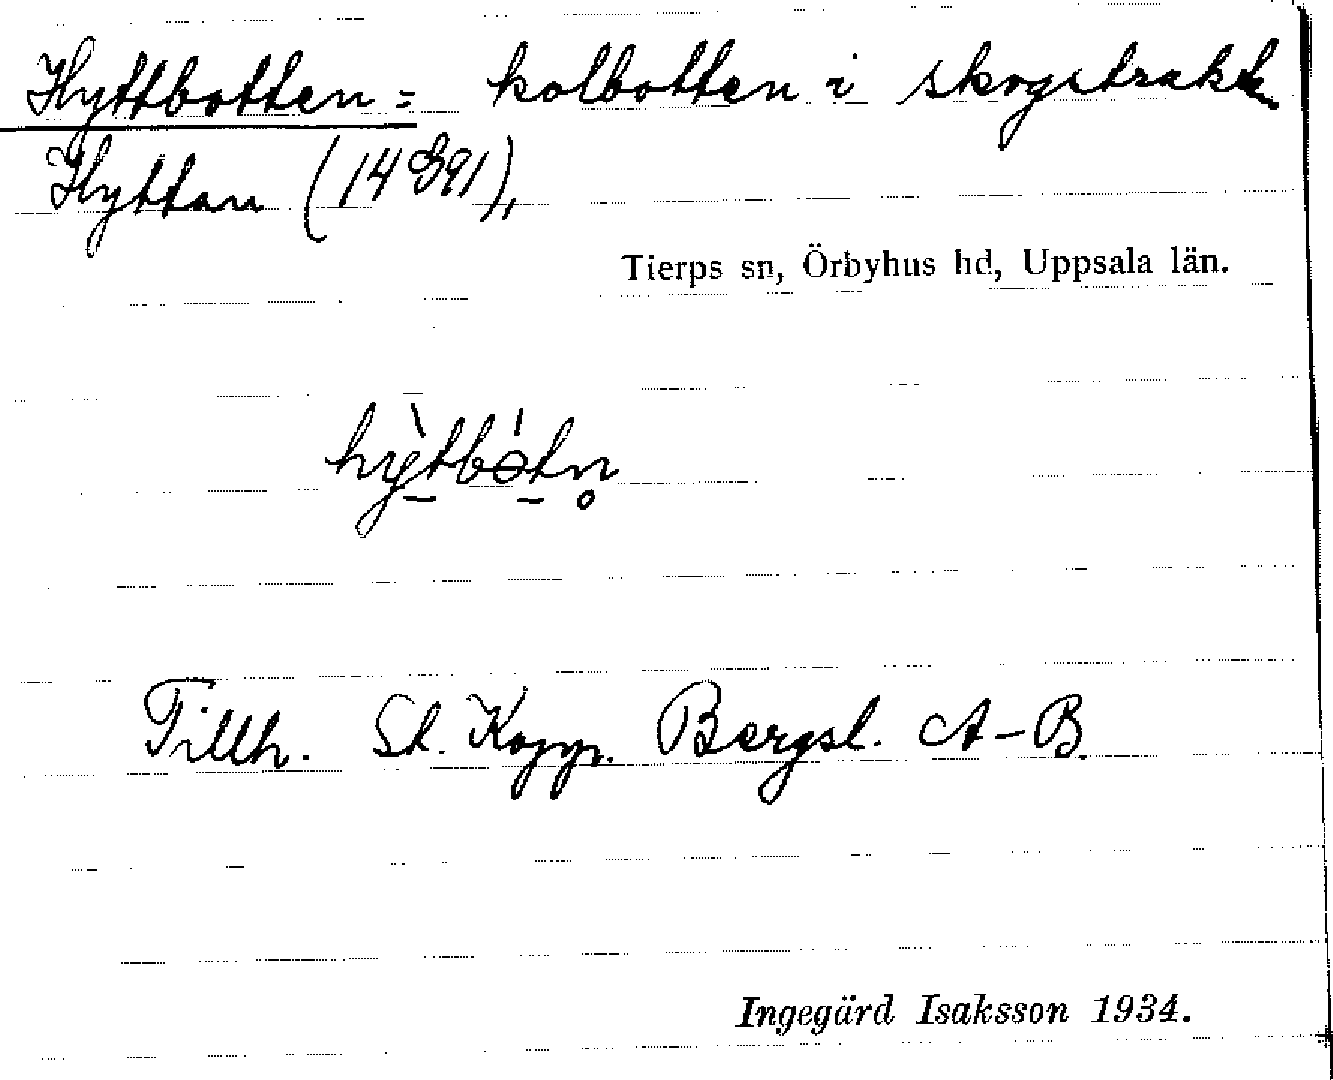 Hyttbotten = kolbotten i skogstrakt
Hyttan (14 891),
Tierps sn, Örbyhus hd, Uppsala län.
hỳtbɵ́tn̥
Tillh. St. Kopp. Bergsl. A-B.
Ingegärd Isaksson 1934.